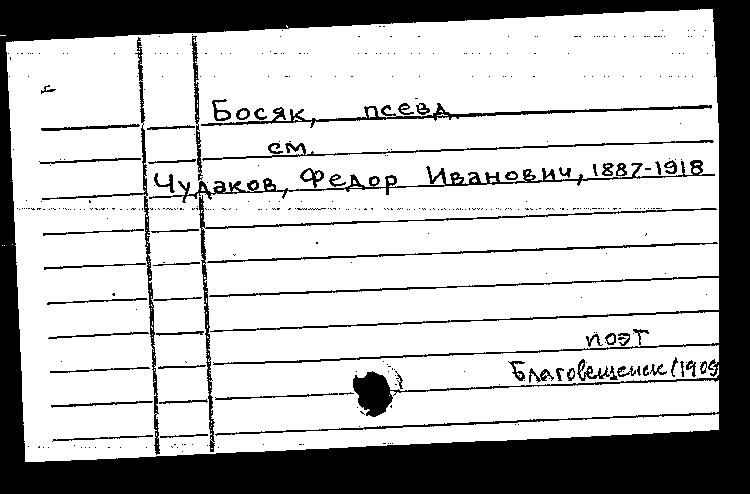 Босяк, псевд.
см.
Чудаков, Федор Иванович, 1887-1918
поэт
Благовещенск (1909